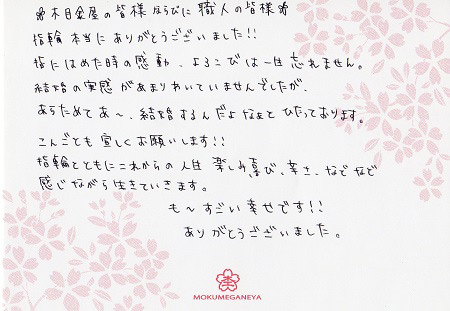 ❀木目金屋の皆様ならびに職人の皆様❀
指輪本当にありがとうございました!!
指にはめた時の感動、よろこびは一生忘れません。
結婚の実感があまりわいていませんでしたが、
あらためてあ〜、結婚するんだよなぁとひたっております。
こんごとも宜しくお願いします!!
指輪とともにこれからの人生楽しみ、喜び、幸せ、などなど
感じながら生きていきます。
も〜すごい幸せです!!
ありがとうございました。
MOKUMEGANEYA